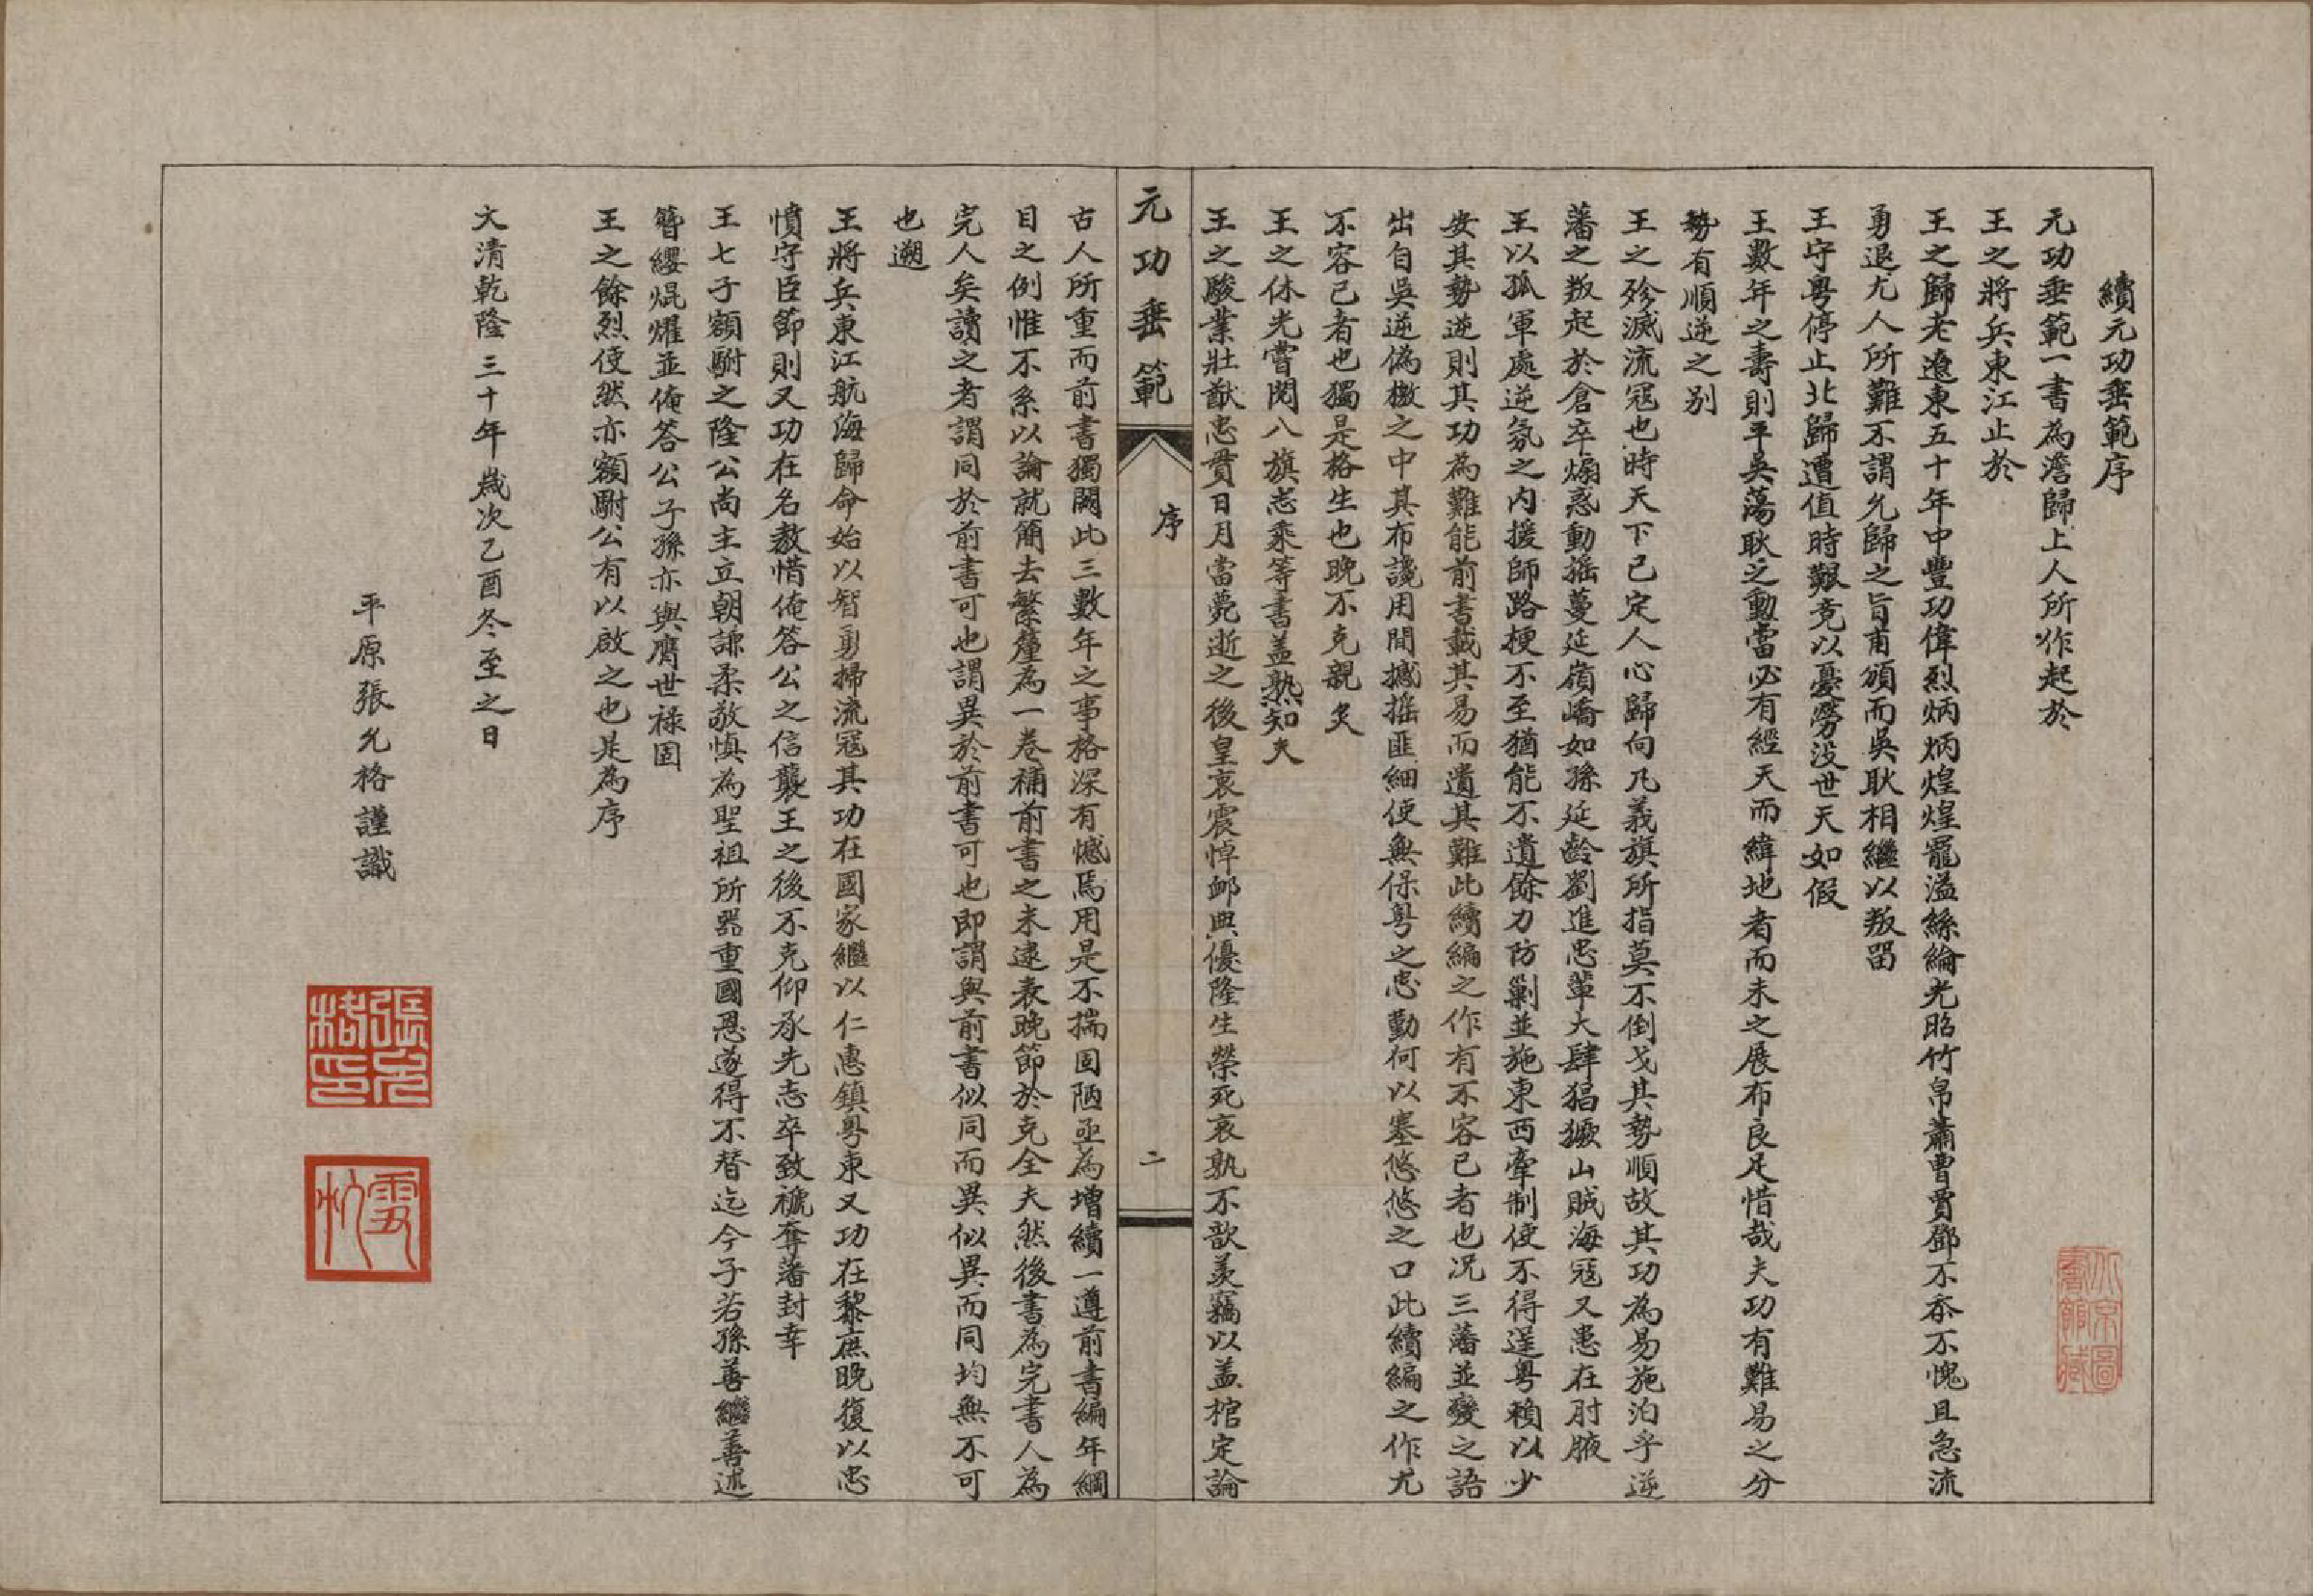 續元功垂範序
元功垂範一書為澹歸上人所作起於
王之將兵東江止於
王之歸老遼東五十年中豐功偉烈炳炳煌煌寵溢絲綸光昭竹帛蕭曹賈鄧不忝不愧且急流
勇退尤人所難不謂允歸之旨甫頒而吳耿相繼以叛留
王守粤停止北歸遭值時艱竟以憂勞沒世天如假
王數年之壽則平吳蕩耿之勳當必有經天而緯地者而未之展布良足惜哉夫功有難易之分
勢有順逆之别
王之殄滅流寇也時天下已定人心歸向凡義旗所指莫不倒戈其勢順故其功為易施洎乎逆
藩之叛起於倉卒煽惑動搖蔓延嶺嶠如孫延齡劉進忠輩大肆猖獗山賊海寇又患在肘腋
王以孤軍處逆氛之内援師路梗不至猶能不遺餘力防剿並施東西牽制使不得逞粤賴以少
安其勢逆則其功為難能前書載其易而遺其難此續編之作有不容已者也况三藩並變之語
出自吳逆偽檄之中其布讒用間撼搖匪細使無保粤之忠勤何以塞悠悠之口此續編之作尤
不容已者也獨是格生也晚不克親炙
王之休光嘗閲八旗志乘等書盖熟知夫
王之駿業壯猷忠貫日月當薨逝之後皇衷震悼卹典優隆生榮死哀孰不歆羨竊以盖棺定論
元功垂範
序
二
古人所重而前書獨闕此三數年之事格深有憾焉用是不揣固陋亟為增續一遵前書編年綱
目之例惟不系以論就簡去繁釐為一卷補前書之未逮表晚節於克全夫然後書為完書人為
完人矣讀之者謂同於前書可也謂異於前書可也即謂與前書似同而異似異而同均無不可
也遡
王將兵東江航海歸命始以智勇掃流寇其功在國家繼以仁惠鎮粤東又功在黎庶晚復以忠
憤守臣節則又功在名教惜俺答公之信襲王之後不克仰承先志卒致褫奪藩封幸
王七子額駙之隆公尚主立朝謙柔敬慎為聖祖所器重國恩遂得不替迄今子若孫善繼善述
簪纓焜燿並俺答公子孫亦與膺世祿固
王之餘烈使然亦額駙公有以啟之也是為序
大清乾隆三十年歲次乙酉冬至之日
平原張允格謹識
張允格印